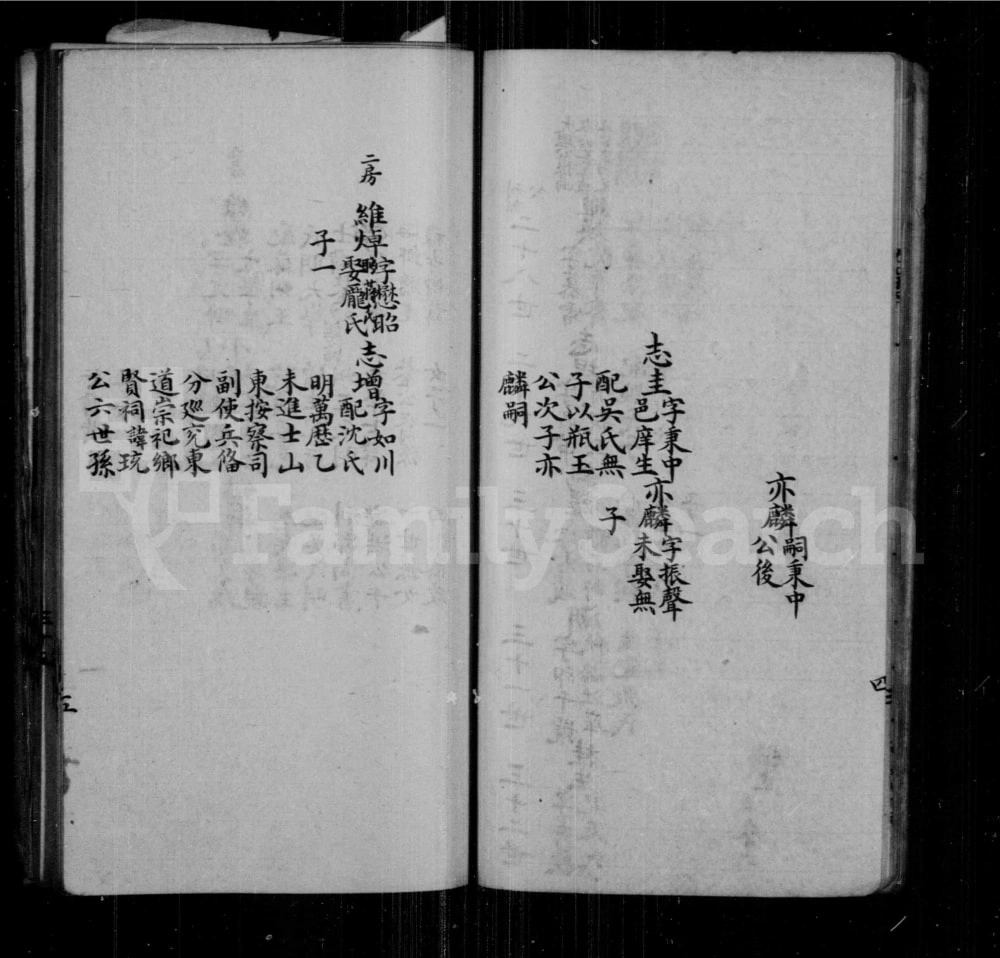 亦麟嗣秉中
公後
志圭字秉中
邑庠生
配吳氏無
子以瓶玉
公次子亦
麟嗣
亦麟字振聲
未娶無
子
二房
維焯字懋昭
娶龐氏
子一
志增字如川
配沈氏
明萬歷乙
未進士山
東按察司
副使兵俻
分廵兖東
道崇祀鄉
賢祠諱琉
公六世孫
四
FamilySearch